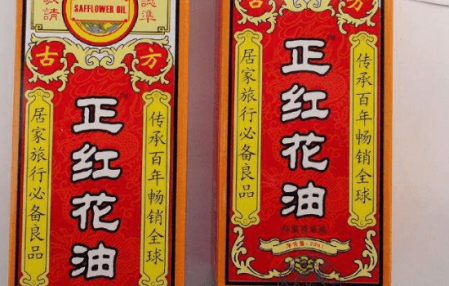 SAFFLOWER OIL
古方
正红花油
传承百年畅销全球
居家旅行必备良品
古方
正红花油
传承百年畅销全球
居家旅行必备良品